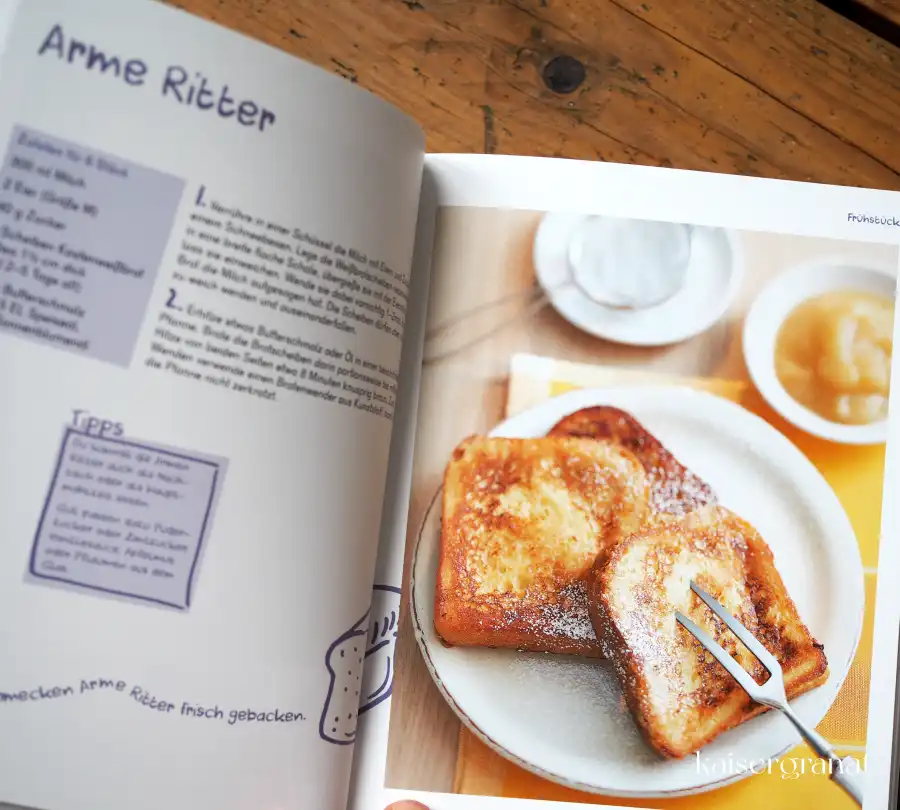 Arme Ritter
Zutaten für 8 Stück
300 ml Milch
2 Eier (Größe M)
Zucker
Scheiben Kastenweißbrot
1½ cm dick
Tage alt)
Butterschmalz
EL Speiseöl,
1. Verrühre in einer Schüssel die Milch mit Eiern und
einem Schneebesen. Lege die Weißbrotscheiben
in eine breite flache Schale, übergieße sie mit der
lass sie einweichen. Wende sie dabei vorsichtig
Brot die Milch aufgesogen hat. Die Scheiben dürfen
zu weich werden und auseinanderfallen.
2. Erhitze etwas Butterschmalz oder Öl in einer
Pfanne. Brate die Brotscheiben darin portionsweise bei
Hitze von beiden Seiten etwa 8 Minuten knusprig braun.
Wenden verwende einen Bratenwender aus Kunststoff,
die Pfanne nicht zerkratzt.
Tipps
Du kannst die Armen
Ritter auch als Nach-
tisch oder als Haupt-
mahlzeit essen.
Gut passen dazu Puder-
zucker oder Zimtzucker
Vanillesauce, Apfelmus
oder Pflaumen aus dem
Glas.
mecken Arme Ritter frisch gebacken.
Frühstück
kaisergranat